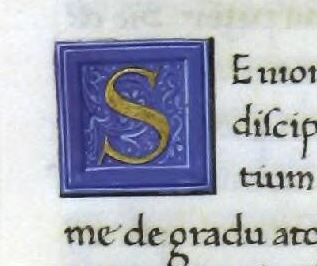 S Emon
discip
tium
me de gradu ato